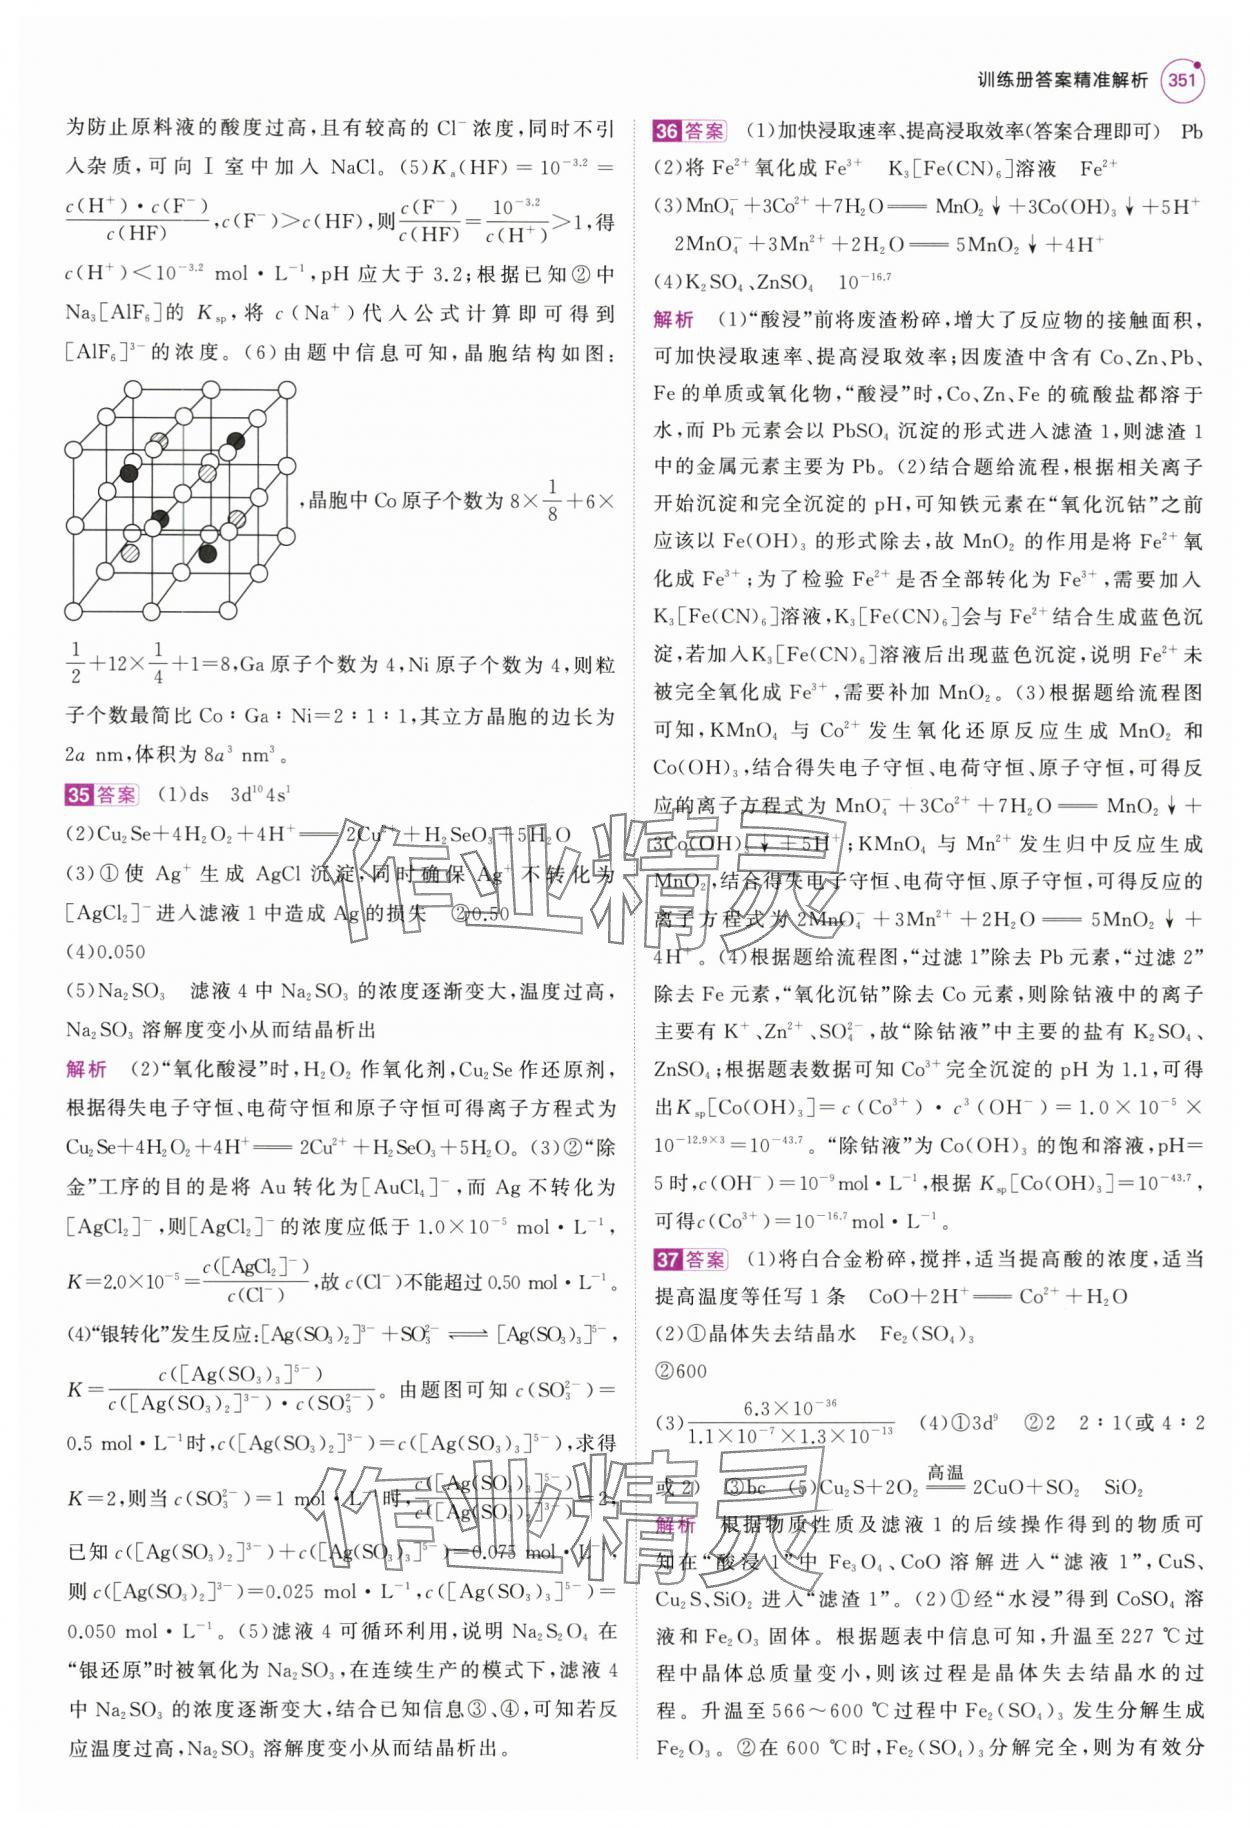 训练册答案精准解析 351
为防止原料液的酸度过高,且有较高的 Cl⁻ 浓度,同时不引
入杂质,可向 Ⅰ 室中加入 NaCl。(5)Kₐ(HF)=10⁻³·²=
c(H⁺)·c(F⁻)/c(HF),c(F⁻)>c(HF),则c(F⁻)/c(HF)=10⁻³·²/c(H⁺)>1,得
c(H⁺)<10⁻³·² mol·L⁻¹,pH 应大于 3.2;根据已知②中
Na₃[AlF₆]的 Kₛₚ,将 c(Na⁺)代入公式计算即可得到
[AlF₆]³⁻的浓度。(6)由题中信息可知,晶胞结构如图:
,晶胞中 Co 原子个数为 8×1/8+6×
1/2+12×1/4+1=8,Ga 原子个数为 4,Ni 原子个数为 4,则粒
子个数最简比 Co∶Ga∶Ni=2∶1∶1,其立方晶胞的边长为
2a nm,体积为 8a³ nm³。
35 答案 (1)ds 3d¹⁰4s¹
(2)Cu₂Se+4H₂O₂+4H⁺══2Cu²⁺+H₂SeO₃+5H₂O
(3)①使 Ag⁺ 生成 AgCl 沉淀,同时确保 Ag⁺ 不转化为
[AgCl₂]⁻进入滤液 1 中造成 Ag 的损失 ②0.50
(4)0.050
(5)Na₂SO₃ 滤液 4 中 Na₂SO₃ 的浓度逐渐变大,温度过高,
Na₂SO₃ 溶解度变小从而结晶析出
解析 (2)“氧化酸浸”时,H₂O₂ 作氧化剂,Cu₂Se 作还原剂,
根据得失电子守恒、电荷守恒和原子守恒可得离子方程式为
Cu₂Se+4H₂O₂+4H⁺══2Cu²⁺+H₂SeO₃+5H₂O。(3)②“除
金”工序的目的是将 Au 转化为[AuCl₄]⁻,而 Ag 不转化为
[AgCl₂]⁻,则[AgCl₂]⁻的浓度应低于 1.0×10⁻⁵ mol·L⁻¹,
K=2.0×10⁻⁵=c([AgCl₂]⁻)/c(Cl⁻),故 c(Cl⁻)不能超过 0.50 mol·L⁻¹。
(4)“银转化”发生反应:[Ag(SO₃)₂]³⁻+SO₃²⁻⇌[Ag(SO₃)₃]⁵⁻,
K=c([Ag(SO₃)₃]⁵⁻)/c([Ag(SO₃)₂]³⁻)·c(SO₃²⁻)。由题图可知 c(SO₃²⁻)=
0.5 mol·L⁻¹时,c([Ag(SO₃)₂]³⁻)=c([Ag(SO₃)₃]⁵⁻),求得
K=2,则当 c(SO₃²⁻)=1 mol·L⁻¹时,c([Ag(SO₃)₃]⁵⁻)/c([Ag(SO₃)₂]³⁻)=2,
已知 c([Ag(SO₃)₂]³⁻)+c([Ag(SO₃)₃]⁵⁻)=0.075 mol·L⁻¹,
则 c([Ag(SO₃)₂]³⁻)=0.025 mol·L⁻¹,c([Ag(SO₃)₃]⁵⁻)=
0.050 mol·L⁻¹。(5)滤液 4 可循环利用,说明 Na₂S₂O₄ 在
“银还原”时被氧化为 Na₂SO₃,在连续生产的模式下,滤液 4
中 Na₂SO₃ 的浓度逐渐变大,结合已知信息③、④,可知若反
应温度过高,Na₂SO₃ 溶解度变小从而结晶析出。
36 答案 (1)加快浸取速率、提高浸取效率(答案合理即可) Pb
(2)将 Fe²⁺氧化成 Fe³⁺ K₃[Fe(CN)₆]溶液 Fe²⁺
(3)MnO₄⁻+3Co²⁺+7H₂O══MnO₂↓+3Co(OH)₃↓+5H⁺
2MnO₄⁻+3Mn²⁺+2H₂O══5MnO₂↓+4H⁺
(4)K₂SO₄、ZnSO₄ 10⁻¹⁶·⁷
解析 (1)“酸浸”前将废渣粉碎,增大了反应物的接触面积,
可加快浸取速率、提高浸取效率;因废渣中含有 Co、Zn、Pb、
Fe 的单质或氧化物,“酸浸”时,Co、Zn、Fe 的硫酸盐都溶于
水,而 Pb 元素会以 PbSO₄ 沉淀的形式进入滤渣 1,则滤渣 1
中的金属元素主要为 Pb。(2)结合题给流程,根据相关离子
开始沉淀和完全沉淀的 pH,可知铁元素在“氧化沉钴”之前
应该以 Fe(OH)₃ 的形式除去,故 MnO₂ 的作用是将 Fe²⁺氧
化成 Fe³⁺;为了检验 Fe²⁺是否全部转化为 Fe³⁺,需要加入
K₃[Fe(CN)₆]溶液,K₃[Fe(CN)₆]会与 Fe²⁺结合生成蓝色沉
淀,若加入K₃[Fe(CN)₆]溶液后出现蓝色沉淀,说明 Fe²⁺未
被完全氧化成 Fe³⁺,需要补加 MnO₂。(3)根据题给流程图
可知,KMnO₄ 与 Co²⁺ 发生氧化还原反应生成 MnO₂ 和
Co(OH)₃,结合得失电子守恒、电荷守恒、原子守恒,可得反
应的离子方程式为 MnO₄⁻+3Co²⁺+7H₂O══MnO₂↓+
3Co(OH)₃↓+5H⁺;KMnO₄ 与 Mn²⁺ 发生归中反应生成
MnO₂,结合得失电子守恒、电荷守恒、原子守恒,可得反应的
离子方程式为 2MnO₄⁻+3Mn²⁺+2H₂O══5MnO₂↓+
4H⁺。(4)根据题给流程图,“过滤 1”除去 Pb 元素,“过滤 2”
除去 Fe 元素,“氧化沉钴”除去 Co 元素,则除钴液中的离子
主要有 K⁺、Zn²⁺、SO₄²⁻,故“除钴液”中主要的盐有 K₂SO₄、
ZnSO₄;根据题表数据可知 Co³⁺完全沉淀的 pH 为 1.1,可得
出Kₛₚ[Co(OH)₃]=c(Co³⁺)·c³(OH⁻)=1.0×10⁻⁵×
10⁻¹²·⁹ˣ³=10⁻⁴³·⁷。“除钴液”为 Co(OH)₃ 的饱和溶液,pH=
5 时,c(OH⁻)=10⁻⁹mol·L⁻¹,根据 Kₛₚ[Co(OH)₃]=10⁻⁴³·⁷,
可得c(Co³⁺)=10⁻¹⁶·⁷mol·L⁻¹。
37 答案 (1)将白合金粉碎,搅拌,适当提高酸的浓度,适当
提高温度等任写 1 条 CoO+2H⁺══Co²⁺+H₂O
(2)①晶体失去结晶水 Fe₂(SO₄)₃
②600
(3)6.3×10⁻³⁶/1.1×10⁻⁷×1.3×10⁻¹³ (4)①3d⁹ ②2 2∶1(或 4∶2
或 2) ③bc (5)Cu₂S+2O₂ 高温══ 2CuO+SO₂ SiO₂
解析 根据物质性质及滤液 1 的后续操作得到的物质可
知在“酸浸 1”中 Fe₃O₄、CoO 溶解进入“滤液 1”,CuS、
Cu₂S、SiO₂ 进入“滤渣 1”。(2)①经“水浸”得到 CoSO₄ 溶
液和 Fe₂O₃ 固体。根据题表中信息可知,升温至 227 ℃过
程中晶体总质量变小,则该过程是晶体失去结晶水的过
程。升温至 566～600 ℃过程中 Fe₂(SO₄)₃ 发生分解生成
Fe₂O₃。②在 600 ℃时,Fe₂(SO₄)₃分解完全,则为有效分
作业精灵
作业精灵